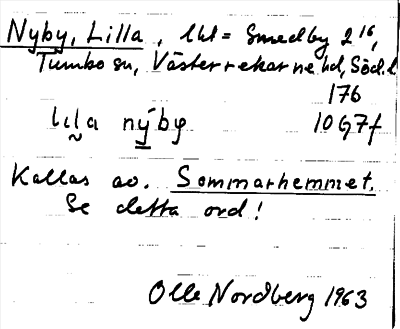 Nyby, Lilla, lht = Smedby 2 16,
Tumbo sn, Västerrekarne hd, Söd. l
176
lila nýby 10G7f
Kallas av. Sommarhemmet.
Se detta ord!
Olle Nordberg 1963